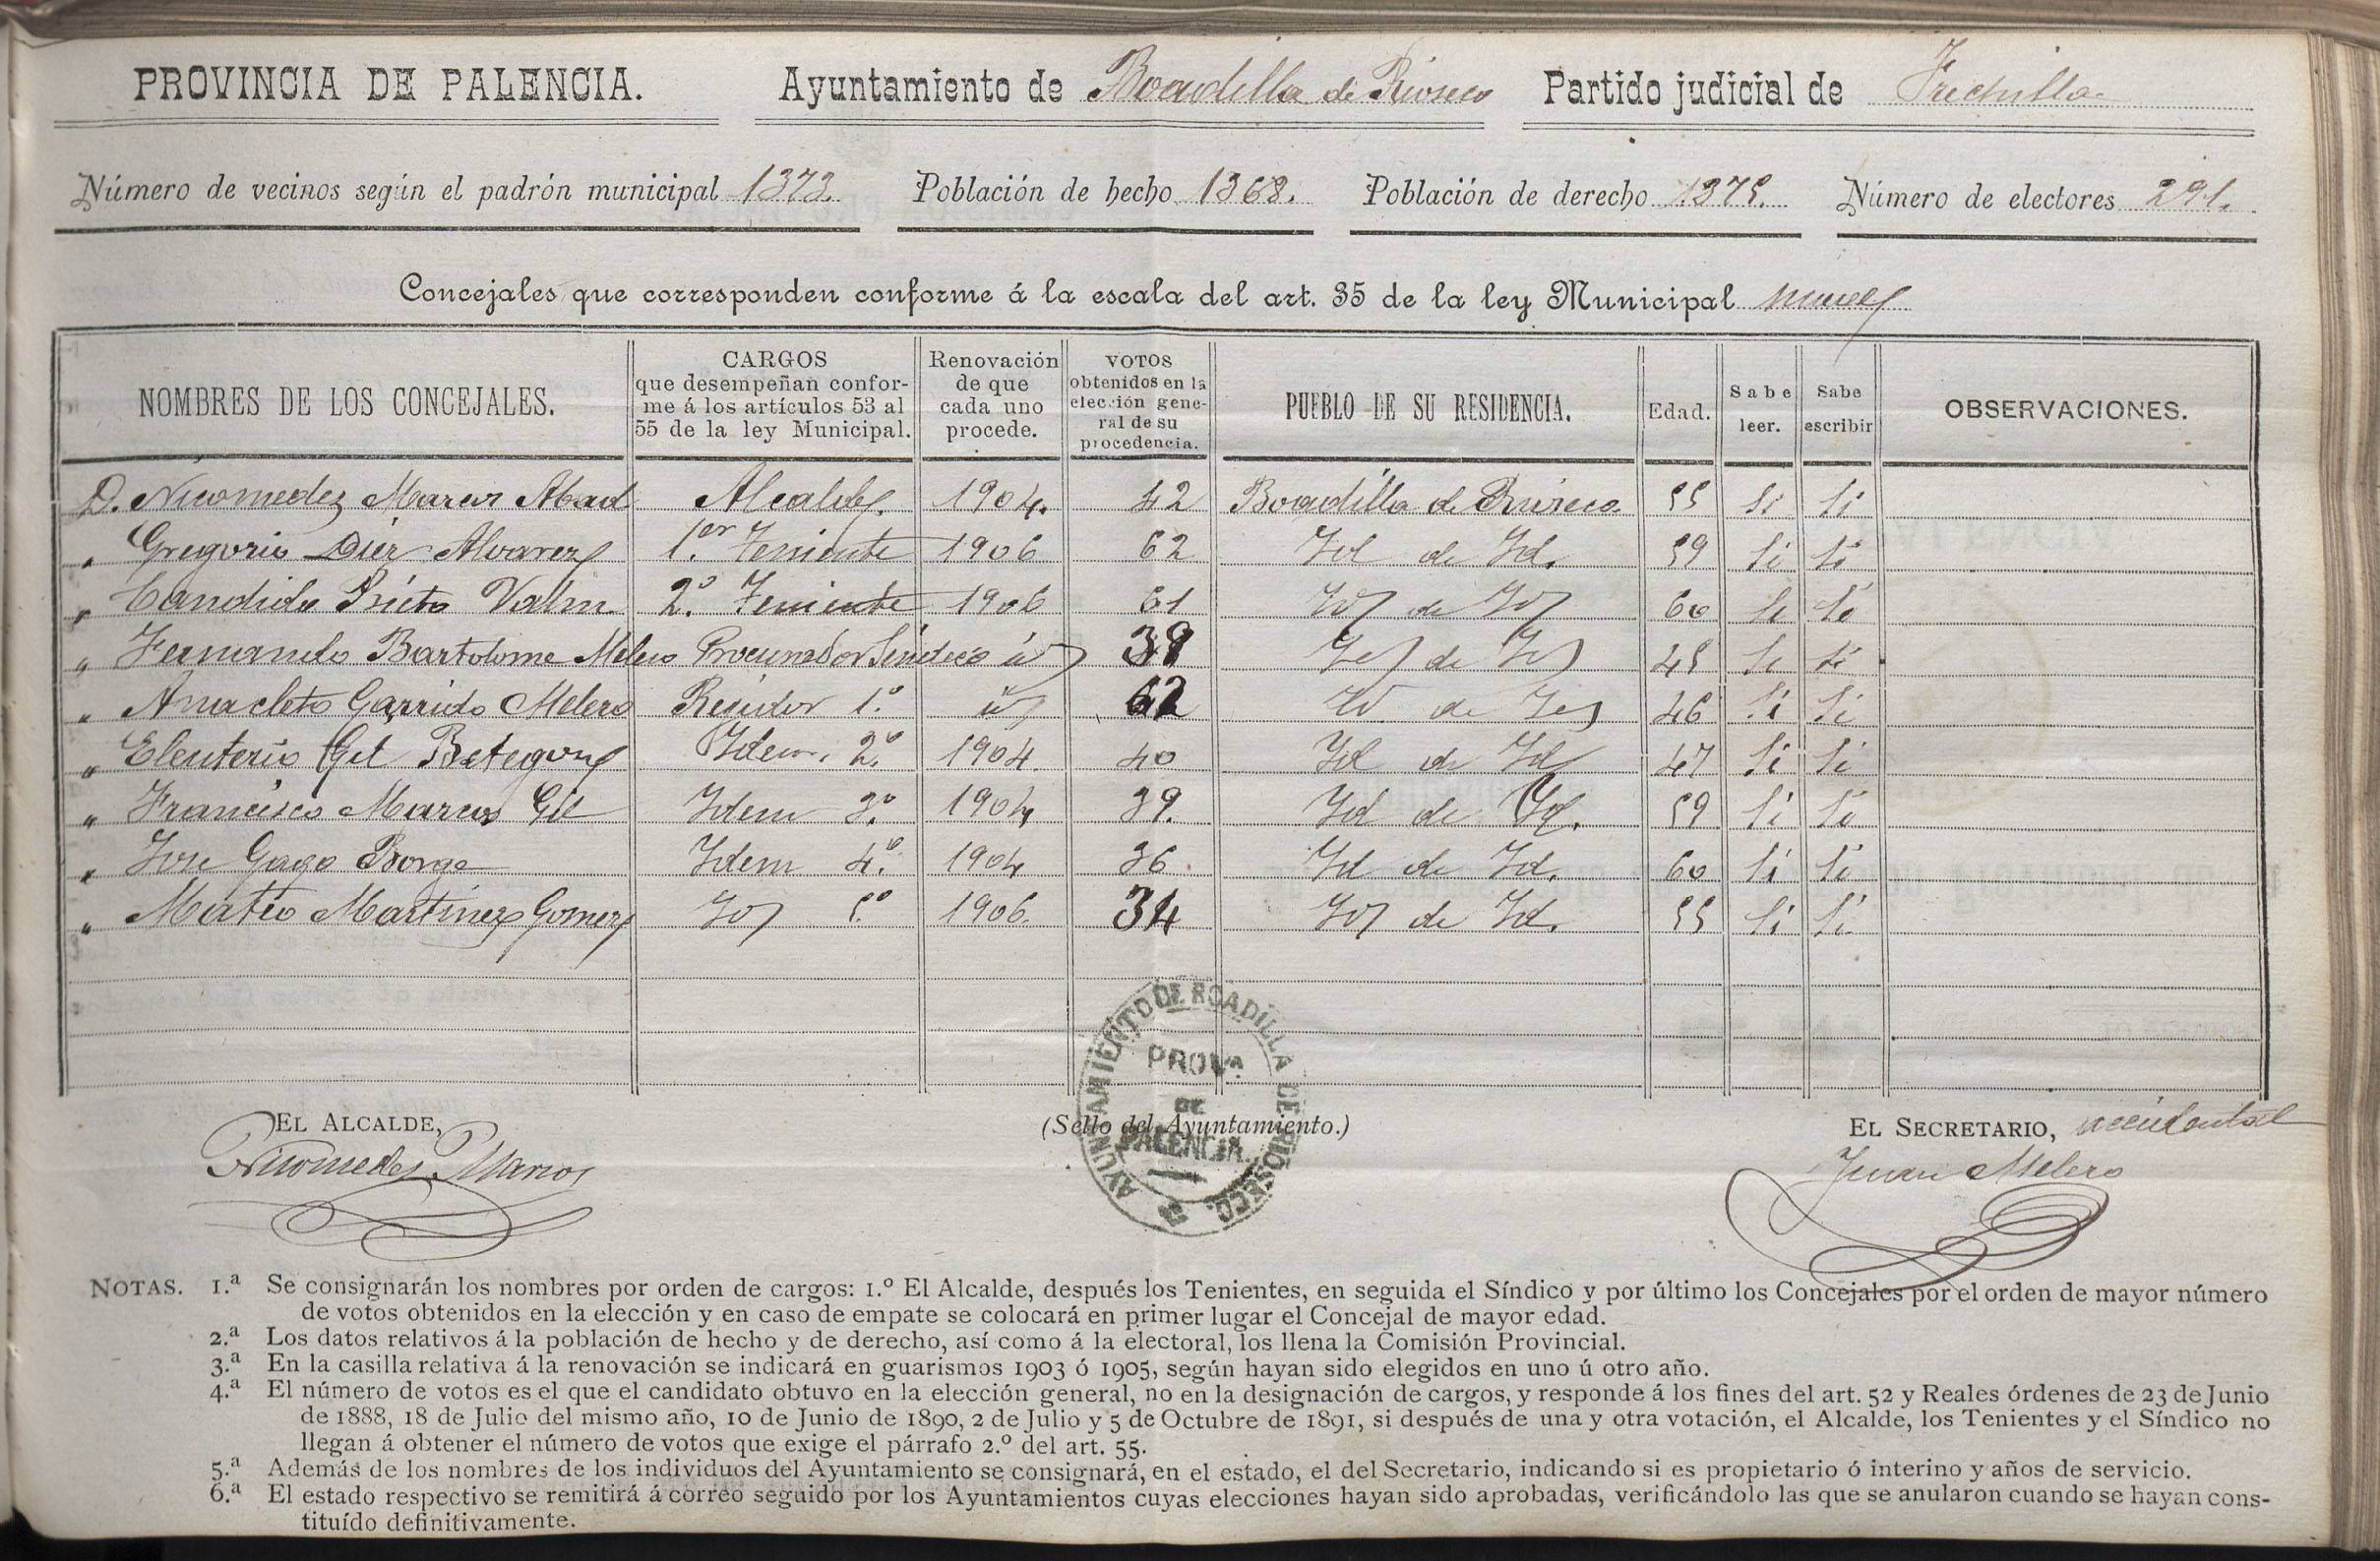 PROVINCIA DE PALENCIA. Ayuntamiento de Boadilla de Rioseco Partido judicial de Frechilla
Número de vecinos según el padrón municipal 1373. Población de hecho 1368. Población de derecho 1375. Número de electores 291.
Concejales que corresponden conforme á la escala del art. 35 de la ley Municipal nueve
NOMBRES DE LOS CONCEJALES. CARGOS que desempeñan conforme á los artículos 53 al 55 de la ley Municipal. Renovación de que cada uno procede. VOTOS obtenidos en la elección general de su procedencia. PUEBLO DE SU RESIDENCIA. Edad. Sabe leer. Sabe escribir OBSERVACIONES.
D. Nicomedez Marcos Abad Alcalde. 1904. 42 Boadilla de Rioseco 55 Si Si
" Gregorio Diez Alvarez 1.er Teniente 1906 62 Id de Id. 59 Si Si
" Candido Prieto Valin 2.º Teniente 1906 61 Id de Id 60 Si Si
" Fernando Bartolome Melero Procurador Síndico id 38 Id de Id 45 Si Si
" Anacleto Garrido Melero Regidor 1.º id 62 Id. de Id 46 Si Si
" Eleuterio Gil Betegon Idem. 2.º 1904. 40 Id de Id 47 Si Si
" Francisco Marcos Gil Idem 3.º 1904 39. Id de Id. 59 Si Si
" Jose Gago Borge Idem 4.º 1904 36. Id de Id. 60 Si Si
" Mateo Martinez Gomez Id 5.º 1906. 34 Id de Id. 55 Si Si
AYUNTAMIENTO DE BOADILLA DE RIOSECO.
PROVA
DE
PALENCIA.
EL ALCALDE,
Nicomedes Marcos
(Sello del Ayuntamiento.)
EL SECRETARIO, accidental
Juan Melero
NOTAS. 1.ª Se consignarán los nombres por orden de cargos: 1.º El Alcalde, después los Tenientes, en seguida el Síndico y por último los Concejales por el orden de mayor número
de votos obtenidos en la elección y en caso de empate se colocará en primer lugar el Concejal de mayor edad.
2.ª Los datos relativos á la población de hecho y de derecho, así como á la electoral, los llena la Comisión Provincial.
3.ª En la casilla relativa á la renovación se indicará en guarismos 1903 ó 1905, según hayan sido elegidos en uno ú otro año.
4.ª El número de votos es el que el candidato obtuvo en la elección general, no en la designación de cargos, y responde á los fines del art. 52 y Reales órdenes de 23 de Junio
de 1888, 18 de Julio del mismo año, 10 de Junio de 1890, 2 de Julio y 5 de Octubre de 1891, si después de una y otra votación, el Alcalde, los Tenientes y el Síndico no
llegan á obtener el número de votos que exige el párrafo 2.º del art. 55.
5.ª Además de los nombres de los individuos del Ayuntamiento se consignará, en el estado, el del Secretario, indicando si es propietario ó interino y años de servicio.
6.ª El estado respectivo se remitirá á correo seguido por los Ayuntamientos cuyas elecciones hayan sido aprobadas, verificándolo las que se anularon cuando se hayan cons-
tituído definitivamente.